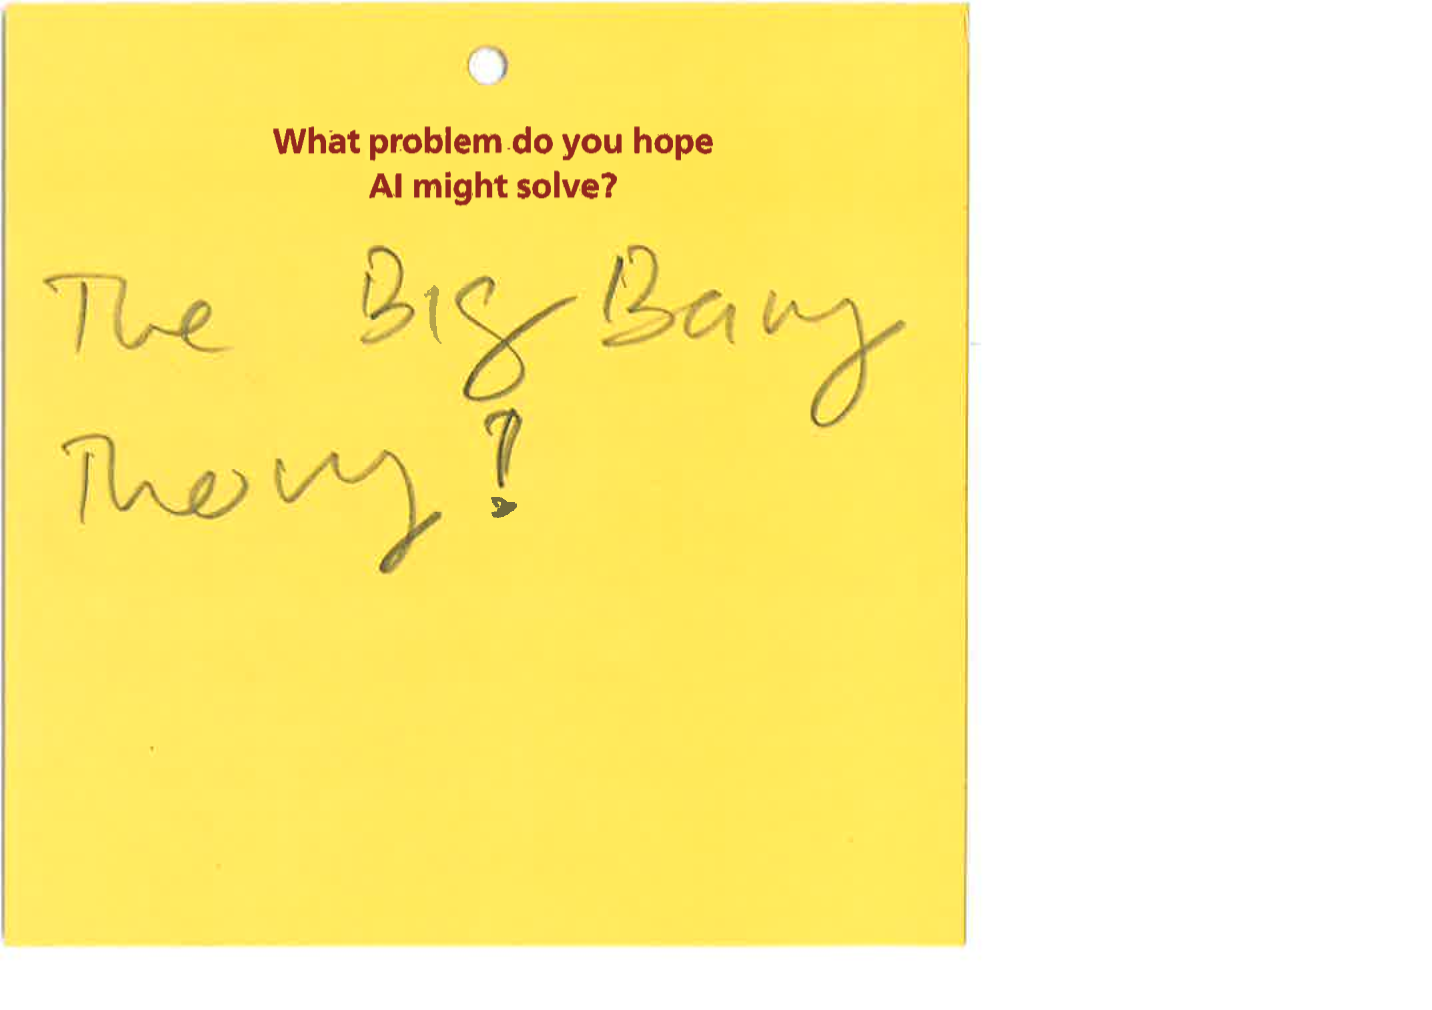 What problem do you hope
AI might solve?
The Big Bang
Theory?